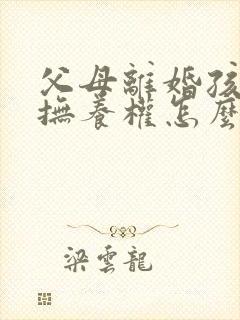 父母離婚孩
撫養權怎麼
梁雲龍